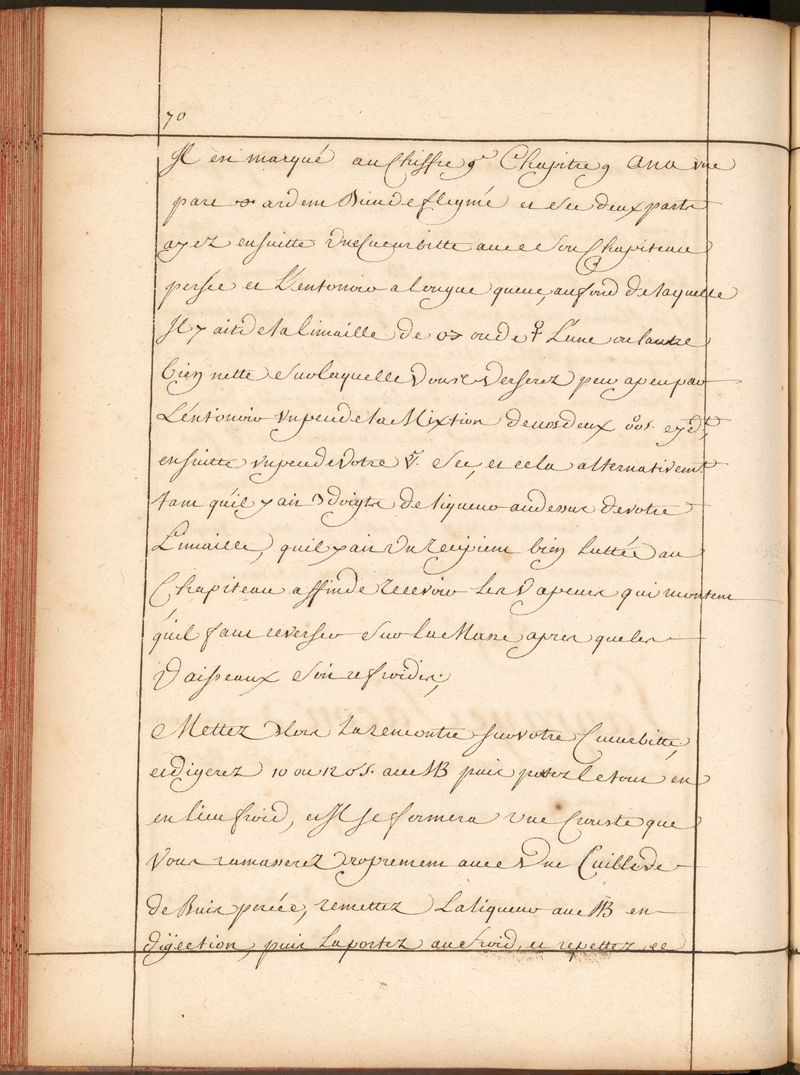 70
Il en marqué au Chiffre 9e Chapitre 9 Ana vne
part ardent Bien deflegmé et Sec deux parts
ayez ensuitte Vne Cucurbitte avec Son Chapiteau
persée et L'entonoir a longue queue, au fond de laquelle
Il y ait de la limaille de ♂ ou de ♀ L'une ou lautre
bien nette Sur laquelle Vous Verserez peu a peu par
L'entonoir Vn peu de la Mixtion de nos deux
ensuitte Vn peu de Votre Sec, et cela alternativemt.
tant quil y ait 3 doigts de liqueur au dessus de votre
Limaille, quil y ait Vn recipient bien luttée au
Chapiteau affin de recevoir Les Vapeurs qui montent
quil faut reverser Sur la Masse apres que les
Vaisseaux Soit refroidis;
Mettez alors La rencontre sur votre Cucurbitte,
et digerez 10 ou 12 avec MB puis posez le tout en
en lieu froid, et Il se formera Vne Crouste que
Vous ramasserez proprement avec Vne Cuilliere
de Buis percée, remettez La liqueur au MB en
digection, puis La portez au froid, et repettez ce